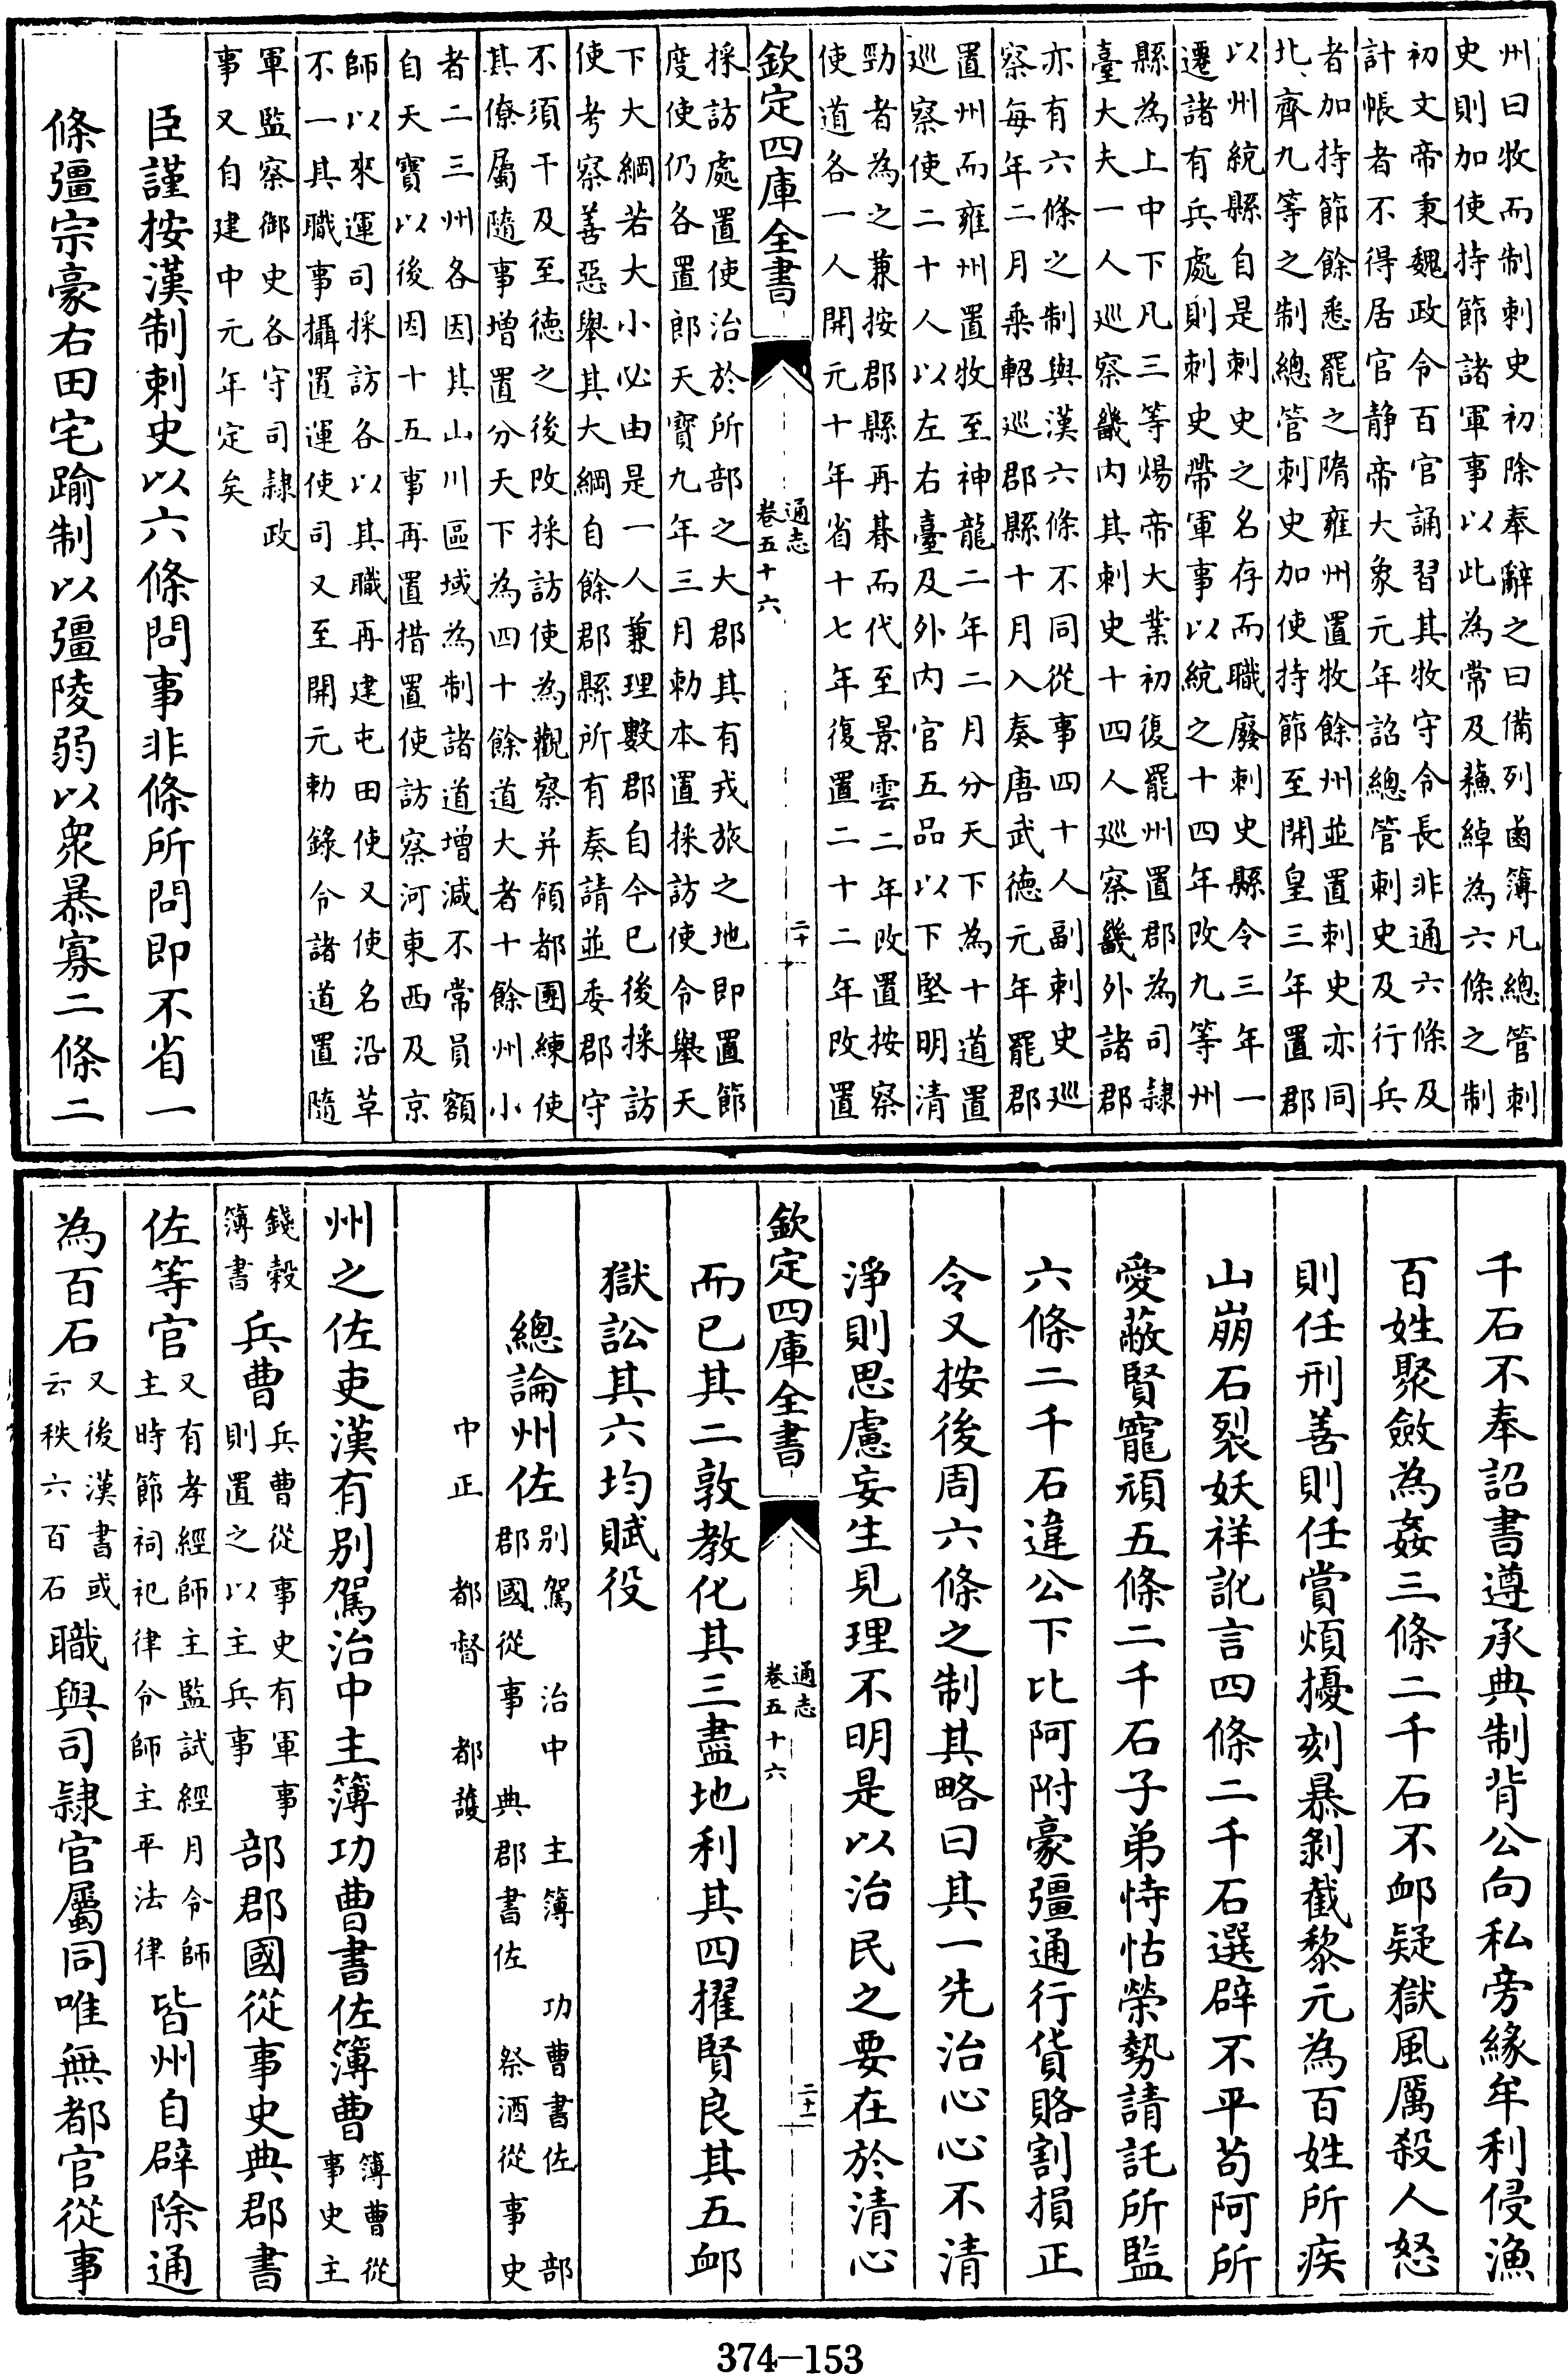 州曰牧而制刺史初除奉辭之曰備列鹵簿凡總管刺
史則加使持節諸軍事以此為常及蘓綽為六條之制
初文帝秉魏政令百官誦習其牧守令長非通六條及
計帳者不得居官靜帝大象元年詔總管刺史及行兵
者加持節餘悉罷之隋雍州置牧餘州並置刺史亦同
北齊九等之制總管刺史加使持節至開皇三年置郡
以州統縣自是刺史之名存而職廢刺史縣令三年一
遷諸有兵處則刺史帶軍事以統之十四年改九等州
縣為上中下凡三等煬帝大業初復罷州置郡為司隷
臺大夫一人巡察畿內其刺史十四人巡察畿外諸郡
亦有六條之制與漢六條不同從事四十人副刺史巡
察每年二月乘軺巡郡縣十月入奏唐武德元年罷郡
置州而雍州置牧至神龍二年二月分天下為十道置
巡察使二十人以左右臺及外內官五品以下堅明清
勁者為之兼按郡縣再朞而代至景雲二年改置按察
使道各一人開元十年省十七年復置二十二年改置
欽定四庫全書
通志
卷五十六
二十
採訪處置使治於所部之大郡其有戎旅之地即置節
度使仍各置郎天寶九年三月勅本置採訪使令舉天
下大綱若大小必由是一人兼理數郡自今已後採訪
使考察善惡舉其大綱自餘郡縣所有奏請並委郡守
不須干及至德之後改採訪使為觀察并領都團練使
其僚屬隨事增置分天下為四十餘道大者十餘州小
者二三州各因其山川區域為制諸道增減不常員額
自天寶以後因十五事再置措置使訪察河東西及京
師以來運司採訪各以其職再建屯田使又使名沿革
不一其職事攝置運使司又至開元勅錄令諸道置隨
軍監察御史各守司隷政
事又自建中元年定矣
臣謹按漢制刺史以六條問事非條所問即不省一
條彊宗豪右田宅踰制以彊陵弱以衆暴寡二條二
千石不奉詔書遵承典制背公向私旁緣牟利侵漁
百姓聚斂為姦三條二千石不衈疑獄風厲殺人怒
則任刑善則任賞煩擾刻暴剝截黎元為百姓所疾
山崩石裂妖祥訛言四條二千石選辟不平苟阿所
愛蔽賢寵頑五條二千石子弟恃怙榮勢請託所監
六條二千石違公下比阿附豪彊通行貨賂割損正
令又按後周六條之制其略曰其一先治心心不清
淨則思慮妄生見理不明是以治民之要在於清心
欽定四庫全書
通志
卷五十六
二十一
而已其二敦教化其三盡地利其四擢賢良其五衈
獄訟其六均賦役
總論州佐 別駕 治中 主簿 功曹書佐 部
郡國從事 典郡書佐 祭酒從事史
中正 都督 都護
州之佐吏漢有別駕治中主簿功曹書佐簿曹 簿曹從
事史主
錢穀
簿書 兵曹 兵曹從事史有軍事
則置之以主兵事 部郡國從事史典郡書
佐等官 又有孝經師主監試經月令師
主時節祠祀律令師主平法律 皆州自辟除通
為百石 又後漢書或
云秩六百石 職與司隷官屬同唯無都官從事
374-153